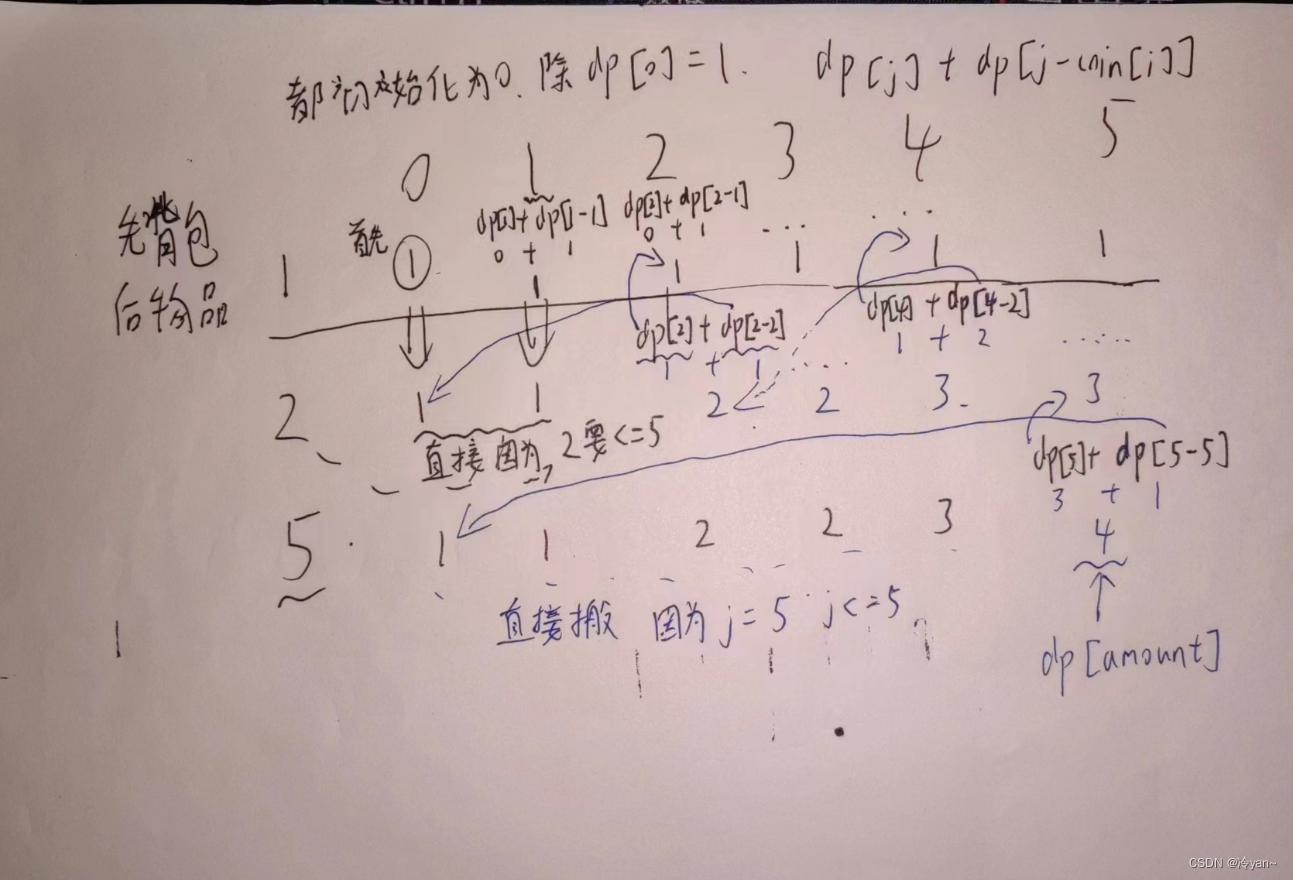 都初始化为0. 除dp[0]=1. dp[j]+dp[j-coin[i]]
0 1 2 3 4 5
先背包
后物品
首先
dp[1]+dp[1-1] dp[2]+dp[2-1] ... ...
0 + 1 0 + 1
1 ① 1 1 1 1 1
dp[2]+dp[2-2] dp[4]+dp[4-2]
1 + 1 ..... 1 + 2 .....
2 1 1 2 2 3 3
直接 因为 2要<=5
dp[5]+dp[5-5]
3 + 1
5 1 1 2 2 3 4
直接搬 因为 j=5 j<=5
dp[amount]
1
CSDN @冷yan~